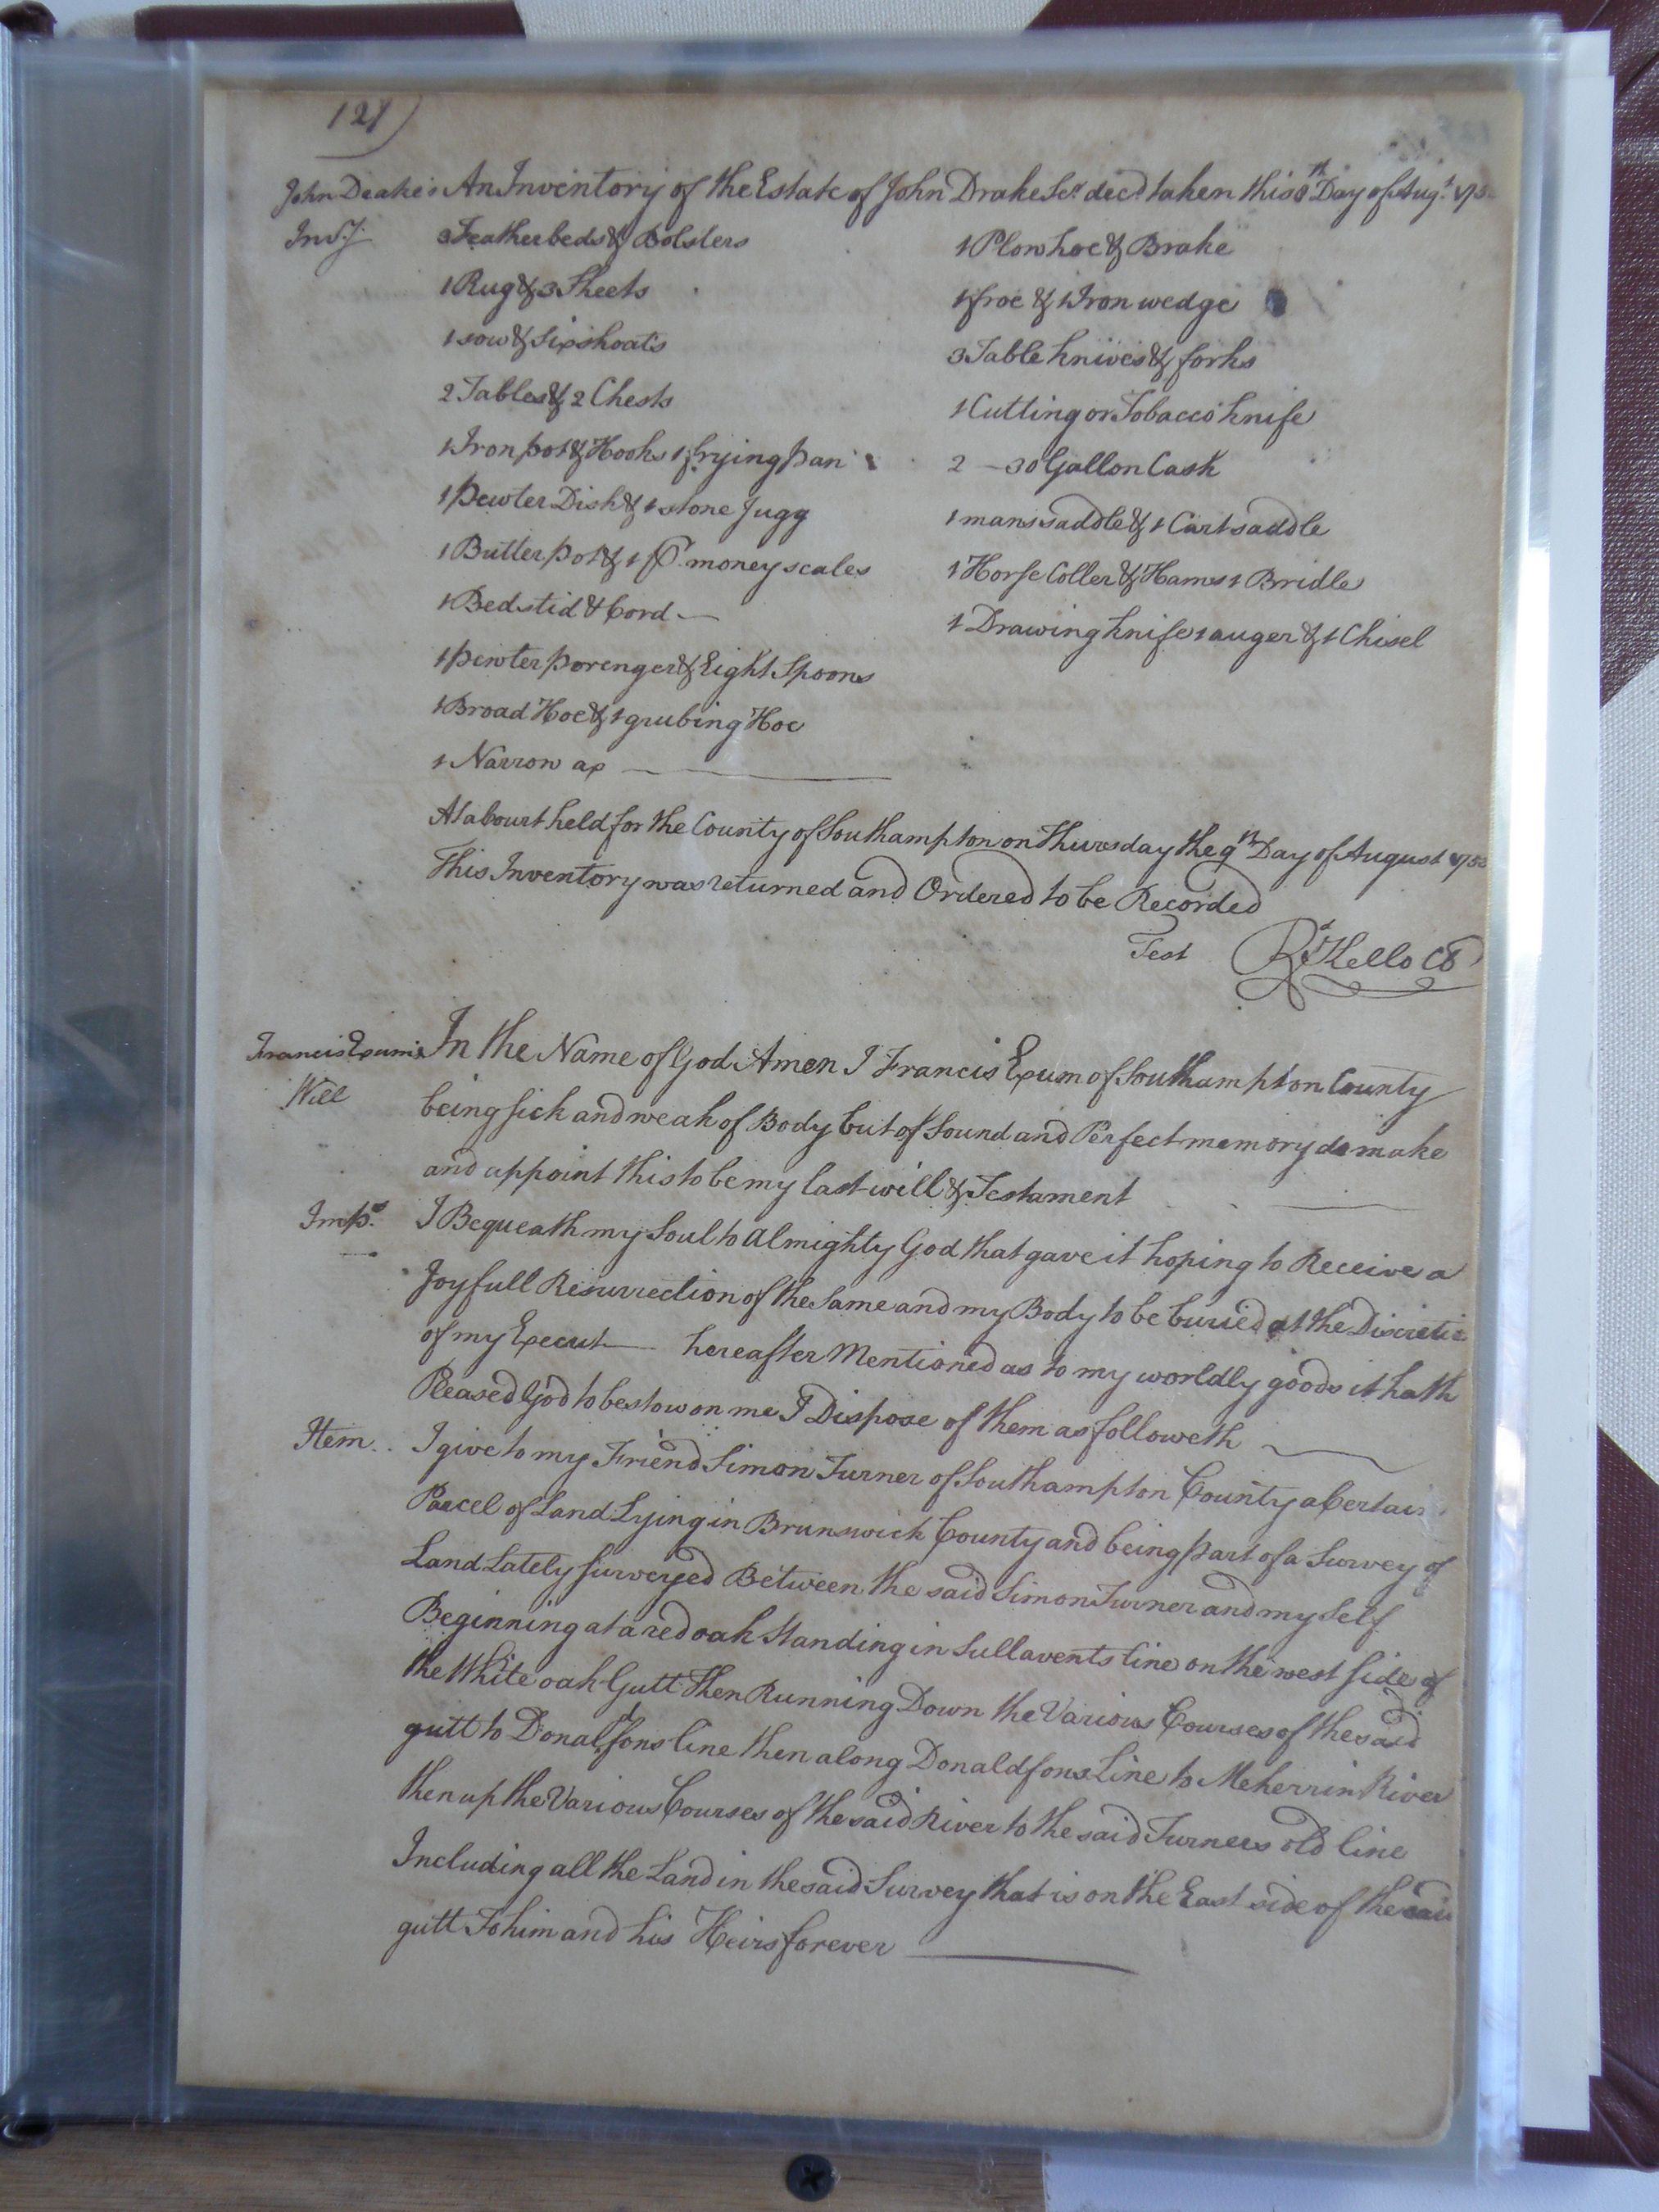 121)
John Drake's An Inventory of the Estate of John Drake Senr. decd. taken this 8th Day of Augt. 175
Invy.
3 Featherbeds & Bolsters
1 Rug & 3 Sheets
1 sow & Six shoats
2 Tables & 2 Chests
1 Iron pot & Hooks 1 frying pan
1 pewter Dish & 1 stone Jugg
1 Butter pot & 1 pr. money scales
1 Bedstid & Cord
1 pewter porenger & Eight Spoons
1 Broad Hoe & 1 grubing Hoe
1 Narrow ax
1 Plow hoe & Brake
1 froe & 1 Iron wedge
3 Table knives & forks
1 Cutting or Tobacco knife
2 - 30 Gallon Cask
1 mans saddle & 1 Cart saddle
1 Horse Coller & Hams 1 Bridle
1 Drawing knife 1 auger & 1 Chisel
At a Court held for the County of Southampton on Thursday the 9th Day of August 175
This Inventory was returned and Ordered to be Recorded
Test Rd Kello CC
Francis Exum's In the Name of God Amen I Francis Exum of Southampton County
Will being sick and weak of Body but of Sound and Perfect memory do make
and appoint this to be my last will & Testament
Imps. I Bequeath my Soul to Almighty God that gave it hoping to Receive a
Joyfull Resurrection of the Same and my Body to be buried at the Discretio
of my Execut hereafter Mentioned as to my worldly goods it hath
Pleased God to bestow on me I Dispose of them as followeth
Item I give to my Friend Simon Turner of Southampton County a Certain
Parcel of Land Lying in Brunswick County and being part of a Survey of
Land Lately Surveyed Between the said Simon Turner and my Self
Beginning at a red oak Standing in Sullavents line on the west Side of
the White oak Gutt Then Running Down the Various Courses of the said
gutt to Donaldsons line then along Donaldsons Line to Meherrin River
then up the Various Courses of the said River to the said Turners old line
Including all the Land in the said Survey that is on the East side of the said
gutt To him and his Heirs forever